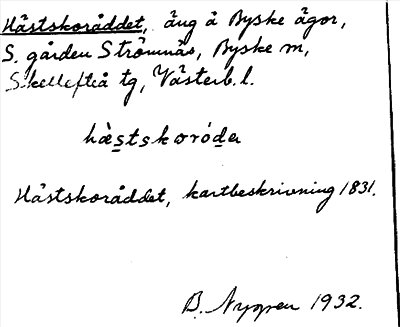 Hästskoråddet, äng å Byske ägor,
S. gården Strömnäs, Byske sn,
Skellefteå tg, Västerb. l.
hästskoróda
Hästskoråddet, kartbeskrivning 1831.
B. Nygren 1932.